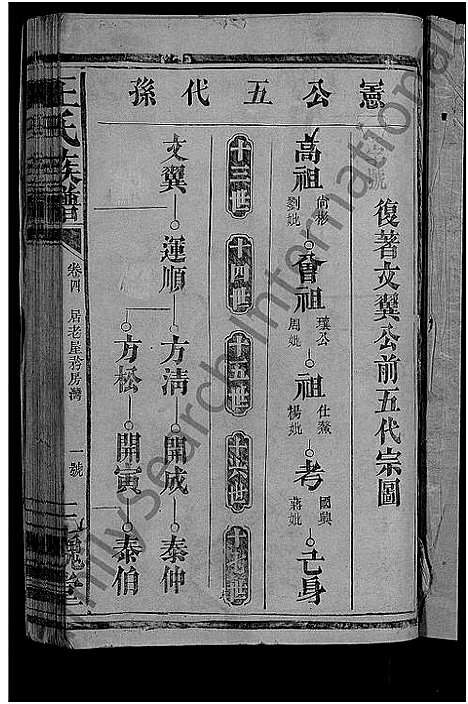 憲公五代孫
復著文翼公前五代宗圖
高祖 尚彬 劉妣
曾祖 瓊公 周妣
祖 仕鰲 楊妣
考 國興 蔣妣
亡身
十三世 十四世 十五世 十六世
文翼 運順 方清 開成 泰仲
方松 開寅 泰伯
王氏族譜
卷四 居老屋衖房灣
一號
三槐堂
FamilySearch International